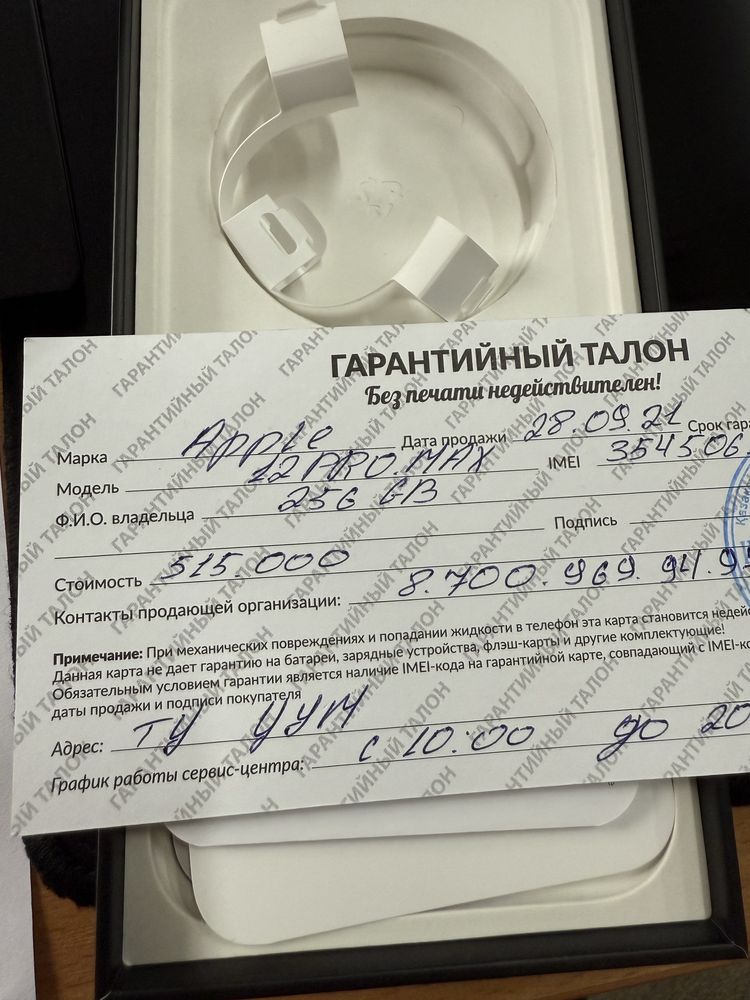 ГАРАНТИЙНЫЙ ТАЛОН
Без печати недействителен!
Марка Apple Дата продажи 28.09.21 Срок гара
Модель 12 PRO MAX IMEI 354506
256 GB
Ф.И.О. владельца
Подпись
Стоимость 515.000
Контакты продающей организации: 8.700.969.94.9
Примечание: При механических повреждениях и попадании жидкости в телефон эта карта становится недейс
Данная карта не дает гарантию на батареи, зарядные устройства, флэш-карты и другие комплектующие!
Обязательным условием гарантии является наличие IMEI-кода на гарантийной карте, совпадающий с IMEI-ко
даты продажи и подписи покупателя
Адрес: ТЦ ЦУМ
График работы сервис-центра: с 10:00 до 20